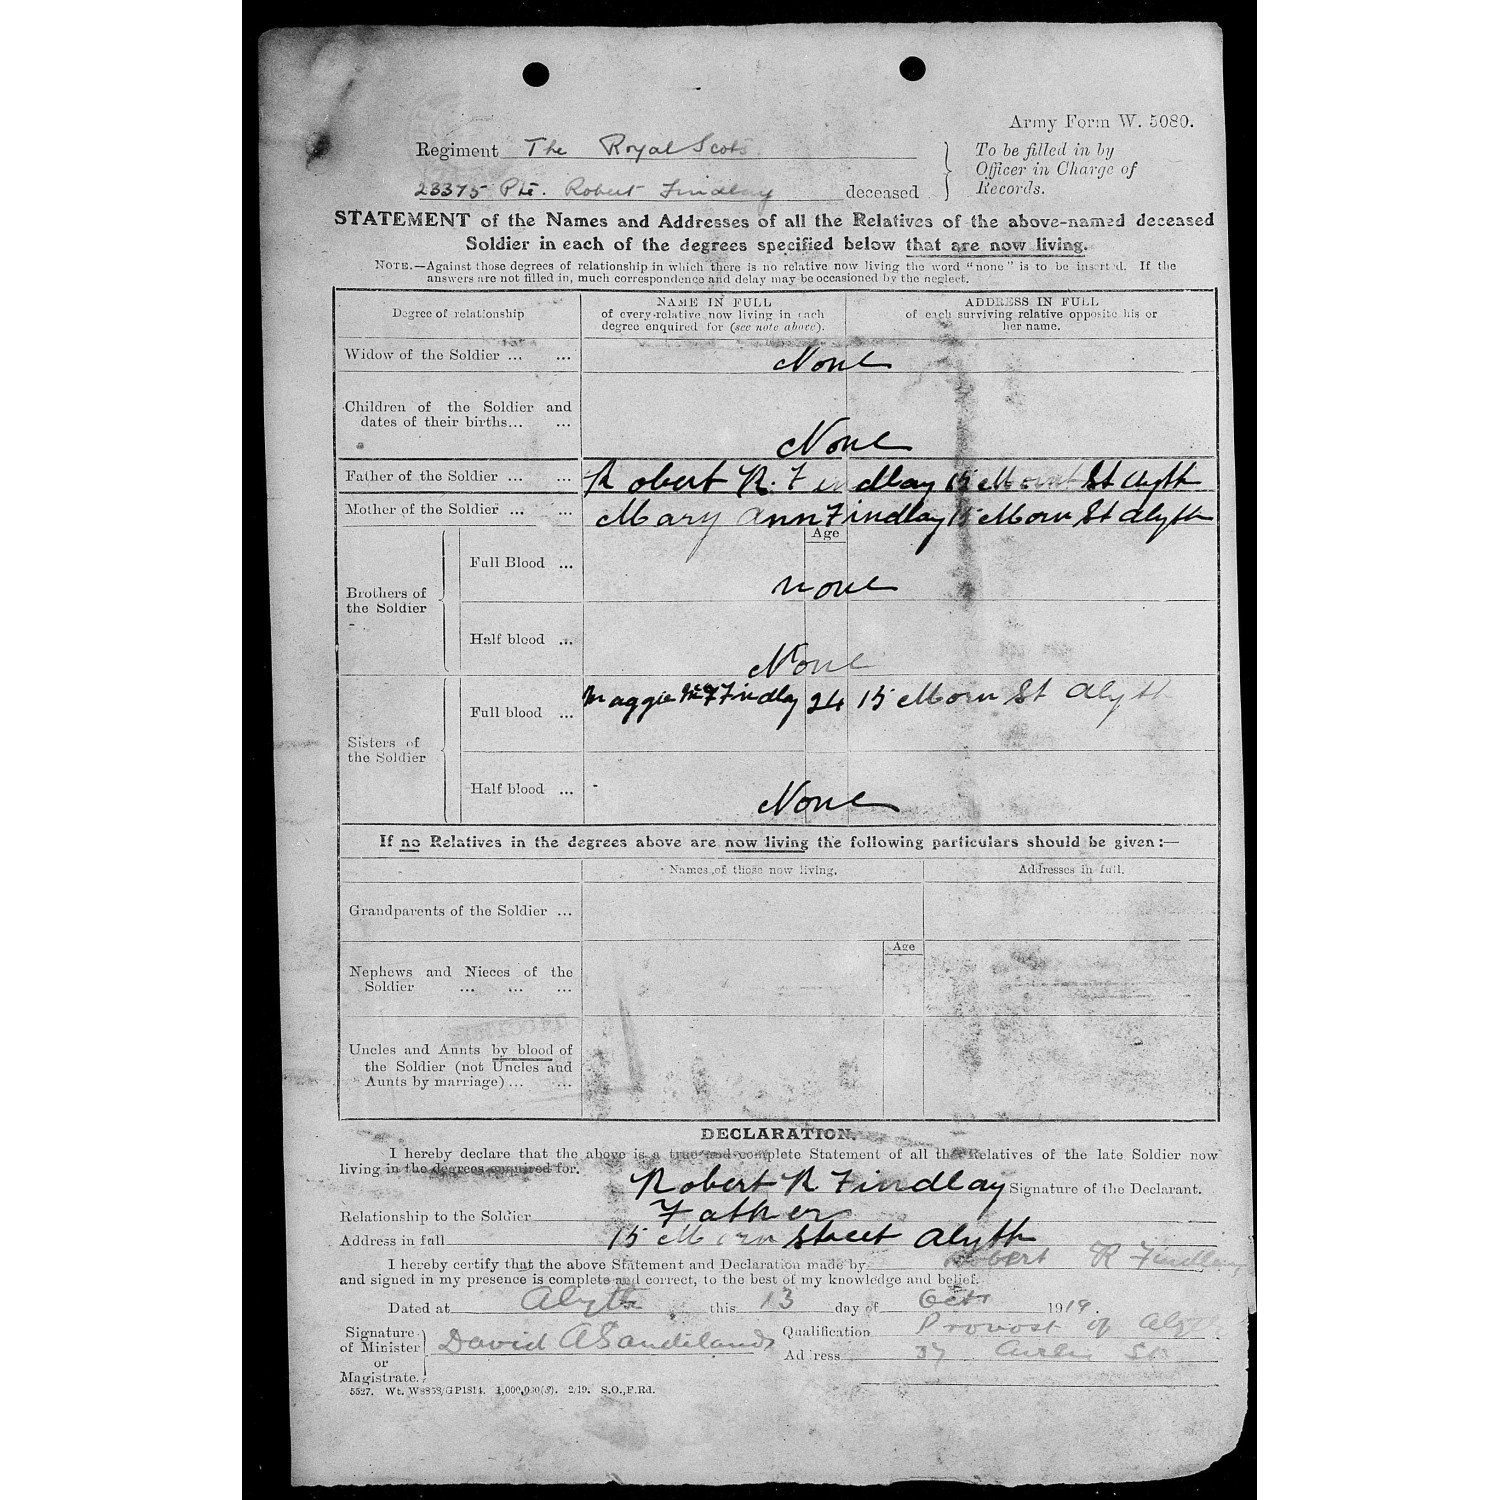 Army Form W. 5080.
Regiment The Royal Scots
23375 Pte. Robert Findlay deceased
To be filled in by
Officer in Charge of
Records.
STATEMENT of the Names and Addresses of all the Relatives of the above-named deceased
Soldier in each of the degrees specified below that are now living.
NOTE.—Against those degrees of relationship in which there is no relative now living the word "none" is to be inserted. If the
answers are not filled in, much correspondence and delay may be occasioned by the neglect.
Degree of relationship
NAME IN FULL
of every relative now living in each
degree enquired for (see note above).
ADDRESS IN FULL
of each surviving relative opposite his or
her name.
Widow of the Soldier ... ... None
Children of the Soldier and
dates of their births... ... None
Father of the Soldier ... ... Robert R. Findlay 15 Morn St Alyth
Mother of the Soldier ... ... Mary Ann Findlay 15 Morn St Alyth
Age
Brothers of
the Soldier
Full Blood ... none
Half blood ... None
Sisters of
the Soldier
Full blood ... Maggie Findlay 24 15 Morn St Alyth
Half blood ... None
If no Relatives in the degrees above are now living the following particulars should be given:—
Names of those now living. Addresses in full.
Grandparents of the Soldier ...
Age
Nephews and Nieces of the
Soldier ... ... ...
Uncles and Aunts by blood of
the Soldier (not Uncles and
Aunts by marriage) ... ...
DECLARATION.
I hereby declare that the above is a true and complete Statement of all the Relatives of the late Soldier now
living in the degrees enquired for.
Robert R Findlay Signature of the Declarant.
Relationship to the Soldier Father
Address in full 15 Morn Street Alyth
I hereby certify that the above Statement and Declaration made by Robert R Findlay
and signed in my presence is complete and correct, to the best of my knowledge and belief.
Dated at Alyth this 13 day of Octr 1919.
Signature
of Minister
or
Magistrate.
David A Sandilands
Qualification Provost of Alyth
Address 37 Airlie St
5527. Wt. W8858/GP1814. 1,000,000(3). 2/19. S.O.,F.Rd.